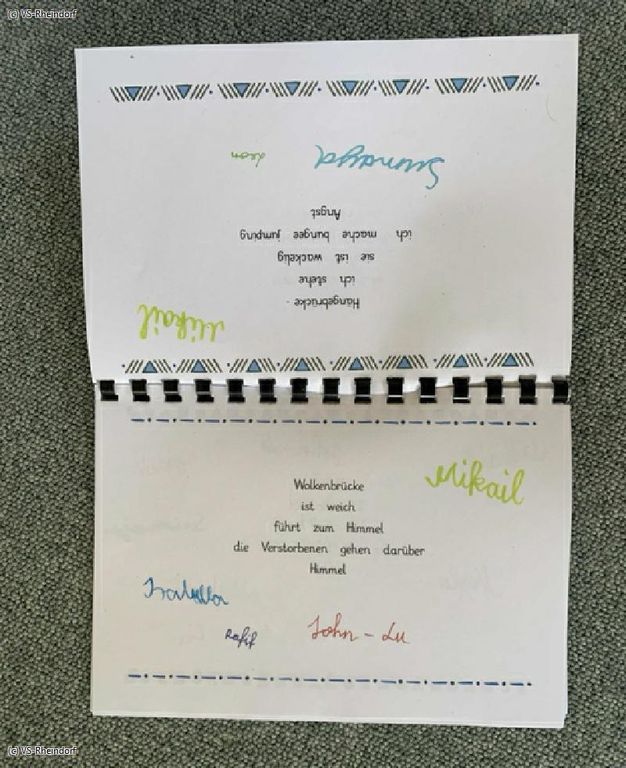 (c) VS-Rheindorf
Mikail
Hängebrücke -
ich stehe
sie ist wackelig
ich mache bungee jumping
Angst
Sumayya Leon
Wolkenbrücke
ist weich
führt zum Himmel
die Verstorbenen gehen darüber
Himmel
Mikail
John-Lu
(c) VS-Rheindorf